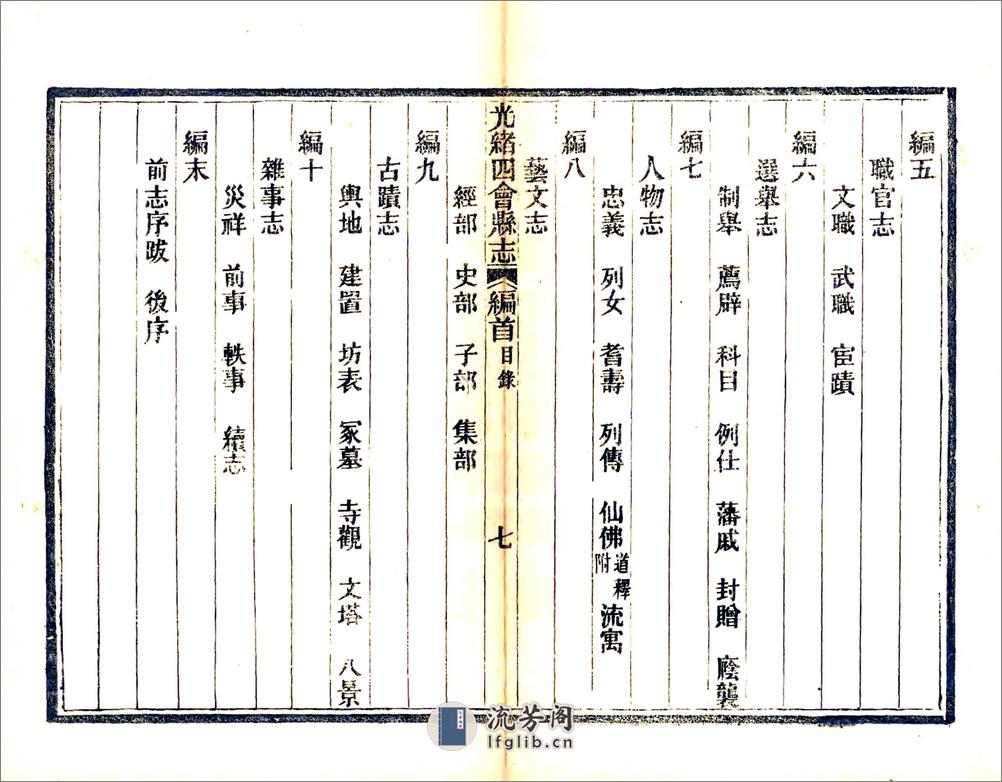 編五
職官志
文職 武職 宦蹟
編六
選舉志
制舉 薦辟 科目 例仕 藩戚 封贈 廕襲
編七
人物志
忠義 列女 耆壽 列傳 仙佛 道釋附 流寓
編八
藝文志
光緒四會縣志 編首 目錄 七
經部 史部 子部 集部
編九
古蹟志
輿地 建置 坊表 冢墓 寺觀 文塔 八景
編十
雜事志
災祥 前事 軼事 續志
編末
前志序跋 後序
流芳阁
lfglib.cn